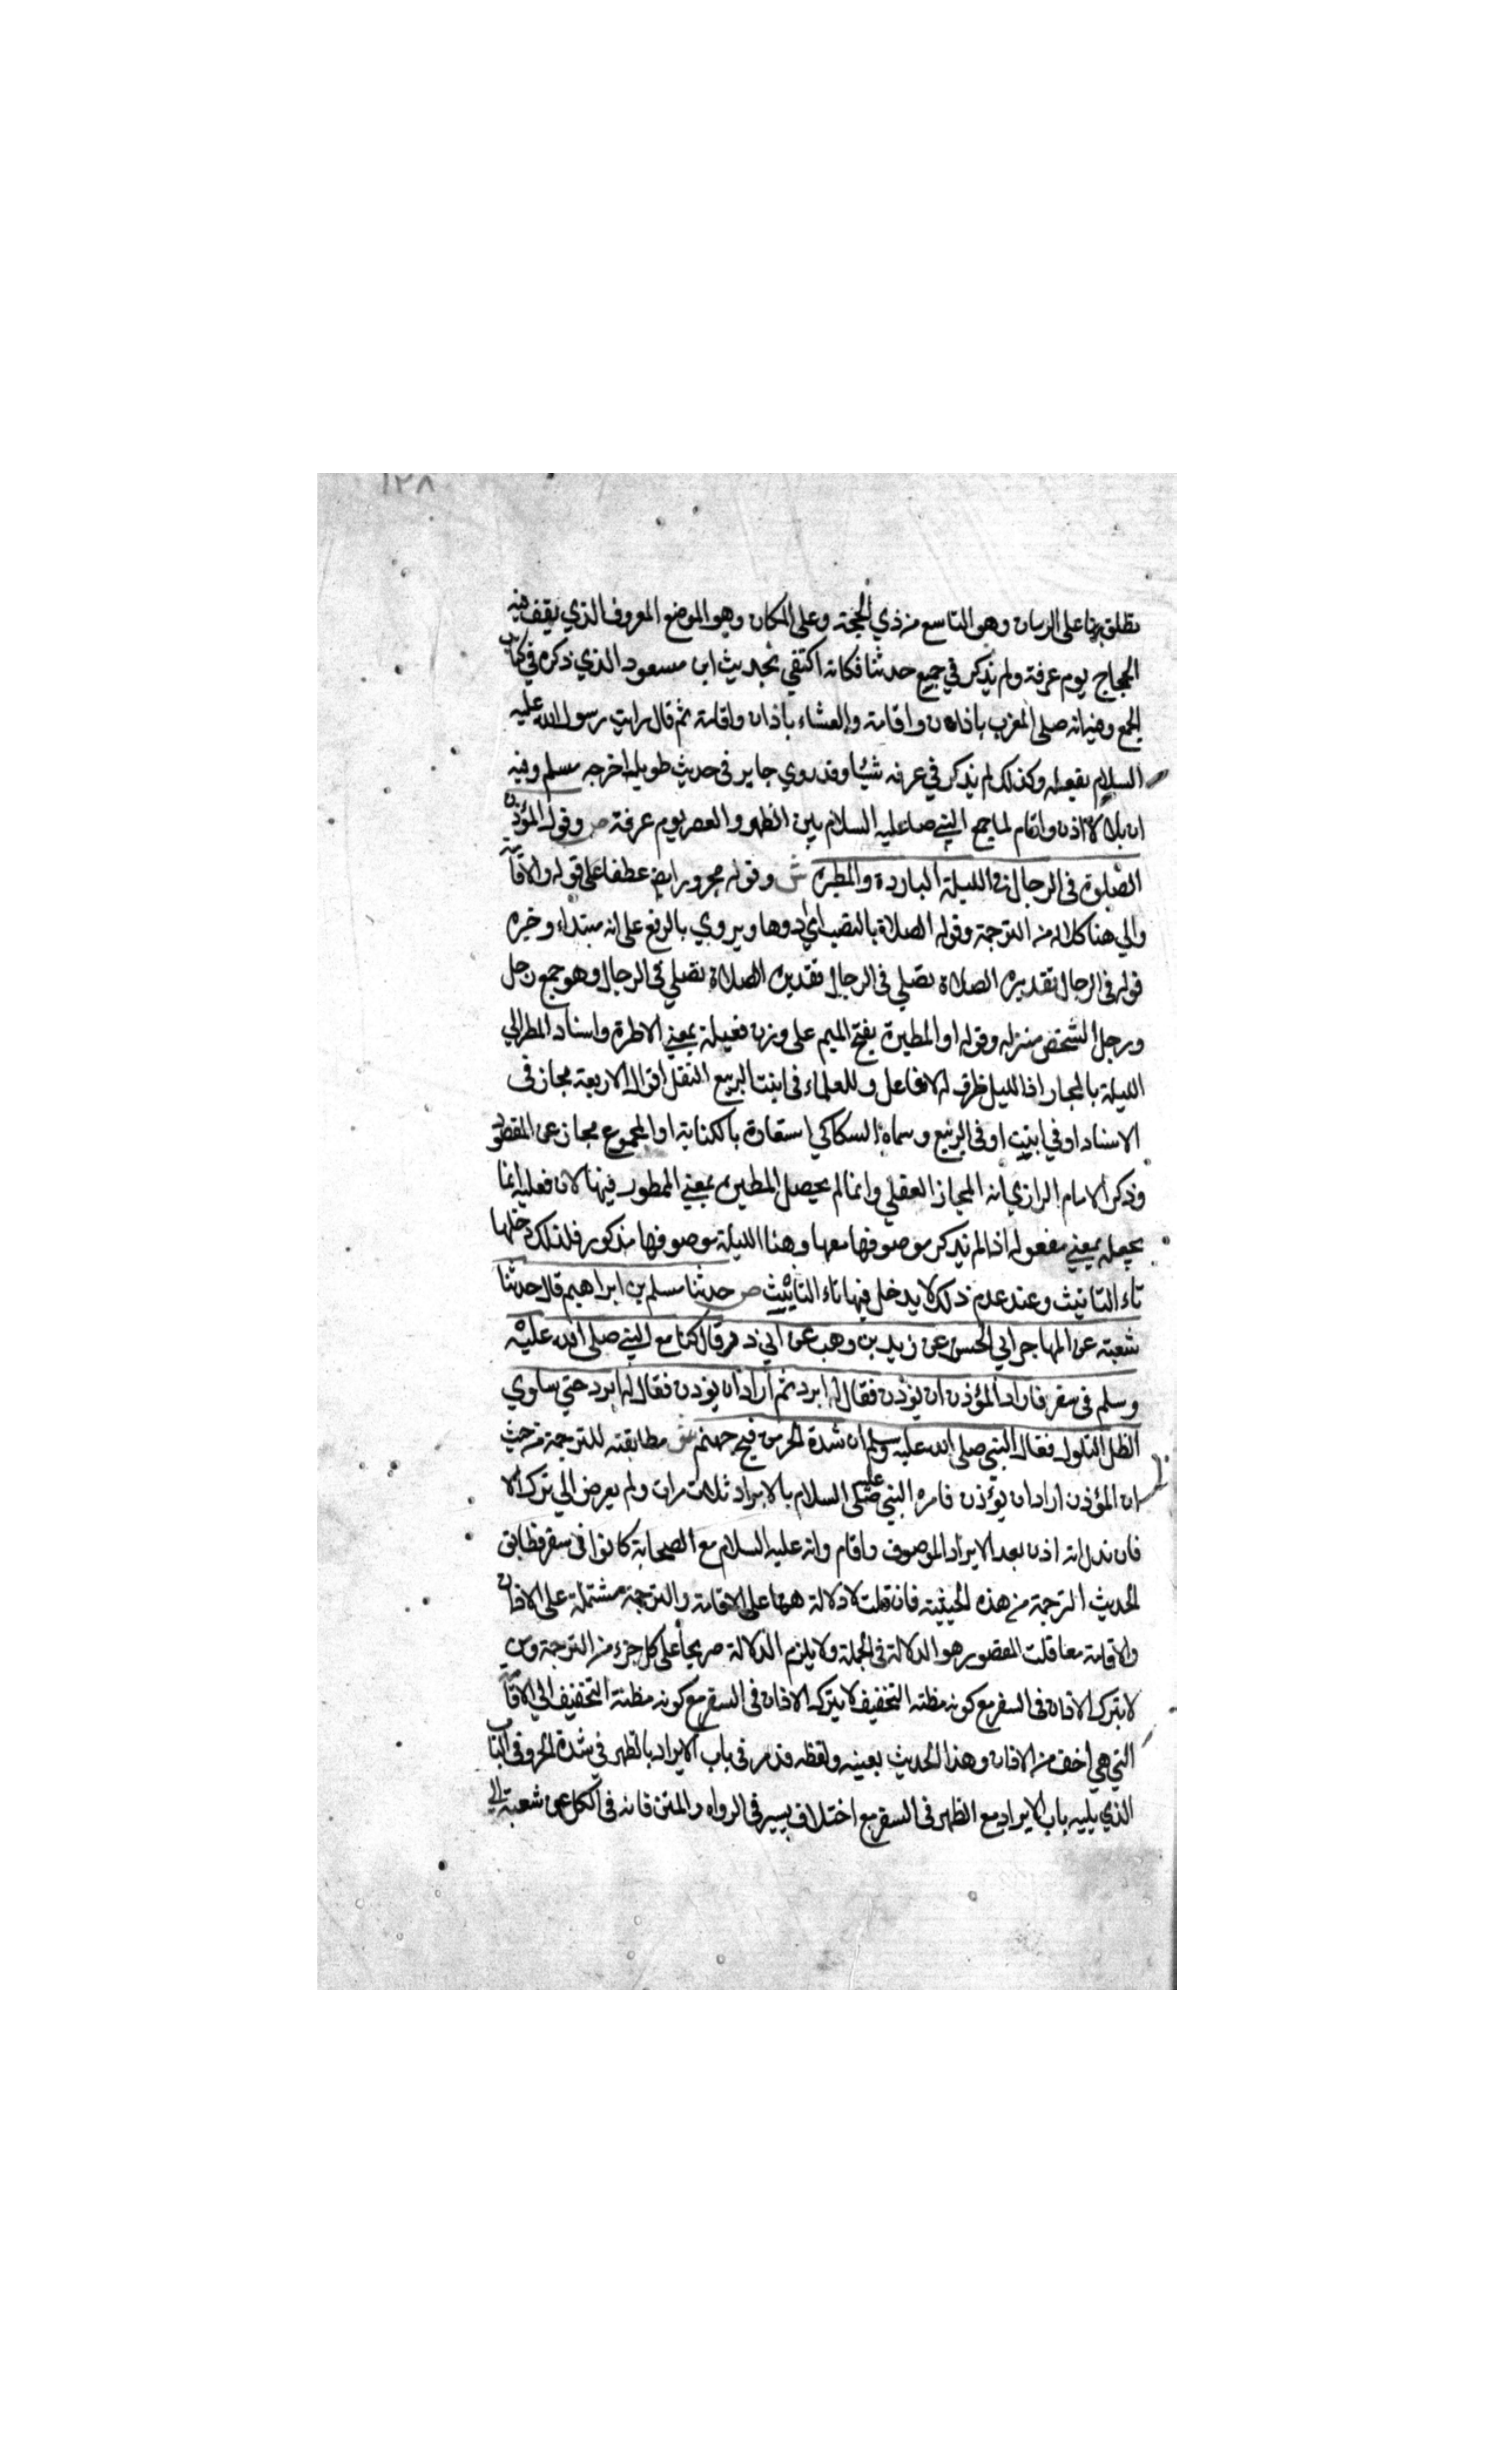 ١٢٨
تطلق بها على الزمان وهو التاسع من ذي الحجة وعلى المكان وهو الموضع المعروف الذي يقف فيه
الحجاج يوم عرفة ولم يذكر في جمع حديثا فكانه اكتفي بحديث ابن مسعود الذي ذكره في كتاب
الجمع وفيه انه صلى المغرب باذان واقامة والعشاء باذان واقامة ثم قال رايت رسول الله عليه
السلام يفعله وكذلك لم يذكر في عرفه شيئا وقد روي جابر في حديث طويل اخرجه مسلم وفيه
ان بلالا اذن واقام لما جمع النبي عليه السلام بين الظهر والعصر يوم عرفة ص وقول المؤذن
الصلوة في الرحال في الليلة الباردة والمطيره ش وقوله مجرور ايضا عطفا على قوله والاقامة
والي هنا كله من الترجمة وقوله الصلاة بالنصب اي ادوها ويروي بالرفع على انه مبتداء وخبره
قوله في الرحال تقديره الصلاة تصلي في الرحال تقديره الصلاة تصلي في الرحال وهو جمع رحل
ورحل الشخص منزله وقوله او المطيرة بفتح الميم على وزن فعيلة بمعني الماطرة واسناد المطر الي
الليلة بالمجاز اذ الليل ظرف له لا فاعل وللعلماء في انبت الربيع البقل اقوال اربعة مجاز في
الاسناد او في انبت او في الربيع وسماه السكاكي استعارة بالكناية او المجموع مجاز عن المقصود
وذكر الامام الرازي انه المجاز العقلي وانما لم يحصل المطيرة بمعني الممطور فيها لان فعيلة انما
يجعل بمعني مفعوله اذا لم يذكر موصوفها معها وهنا الليلة موصوفها مذكور فلذلك دخلها
تاء التانيث وعند عدم ذلك لا يدخل فيها تاء التانيث ص حدثنا مسلم بن ابراهيم قال حدثنا
شعبة عن المهاجر ابي الحسن عن زيد بن وهب عن ابي ذر قال كنا مع النبي صلى الله عليه
وسلم في سفر فاراد المؤذن ان يؤذن فقال له ابرد ثم اراد ان يؤذن فقال له ابرد حتي ساوي
الظل التلول فقال النبي صلى الله عليه وسلم ان شدة الحر من فيح جهنم ش مطابقته للترجمة من حيث
ان المؤذن اراد ان يؤذن فامره النبي عليه السلام بالابراد ثلاث مرات ولم يعرض الي ترك الا
فان فدل انه اذن بعد الابراد الموصوف واقام وانه عليه السلام مع الصحابة كانوا في سفر فطابق
الحديث الترجمة من هذه الحيثية فان قلت لا دلالة هنا على الاقامة والترجمة مشتملة على الاذان
والاقامة معا قلت المقصود هو الدلالة في الجملة ولا يلزم الدلالة صريحا على كل جزء من الترجمة
لا يترك الاذان في السفر مع كونه مظنه التخفيف لا يترك الاذان في السفر مع كونه مظنة التخفيف الي الاقامة
التي هي اخف من الاذان وهذا الحديث بعينه ولفظه قد مر في باب الابراد بالظهر في شدة الحر وفي الباب
الذي يليه باب الابراد مع الظهر في السفر مع اختلاف يسير في الرواه والمتن فانه في الكل عن شعبة الي